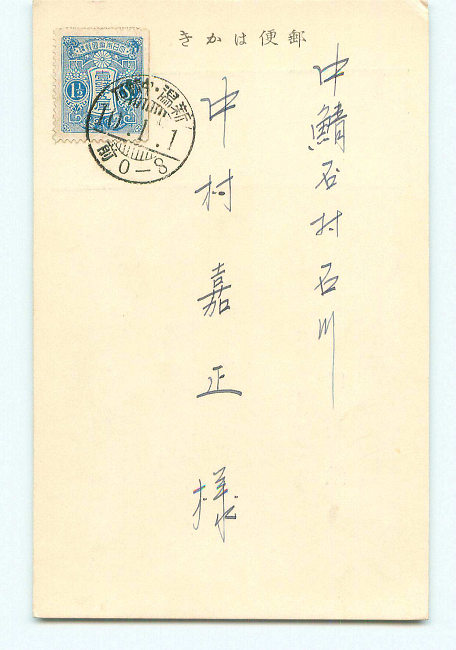 郵便はかき
中鯖石村石川
中村嘉正様
大日本帝國郵便
壹錢五厘
1½
新潟
1.1
前0-8